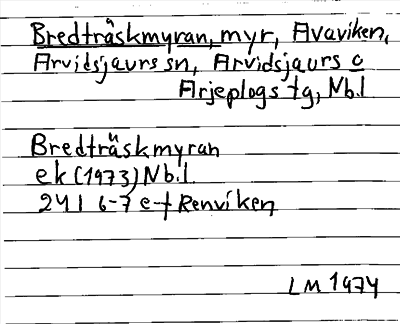 Bredträskmyran, myr, Avaviken,
Arvidsjaurs sn, Arvidsjaurs o
Arjeplogs tg, Nb.l
Bredträskmyran
ek (1973) Nb.l.
24I 6-7 e-f Renviken
LM 1974